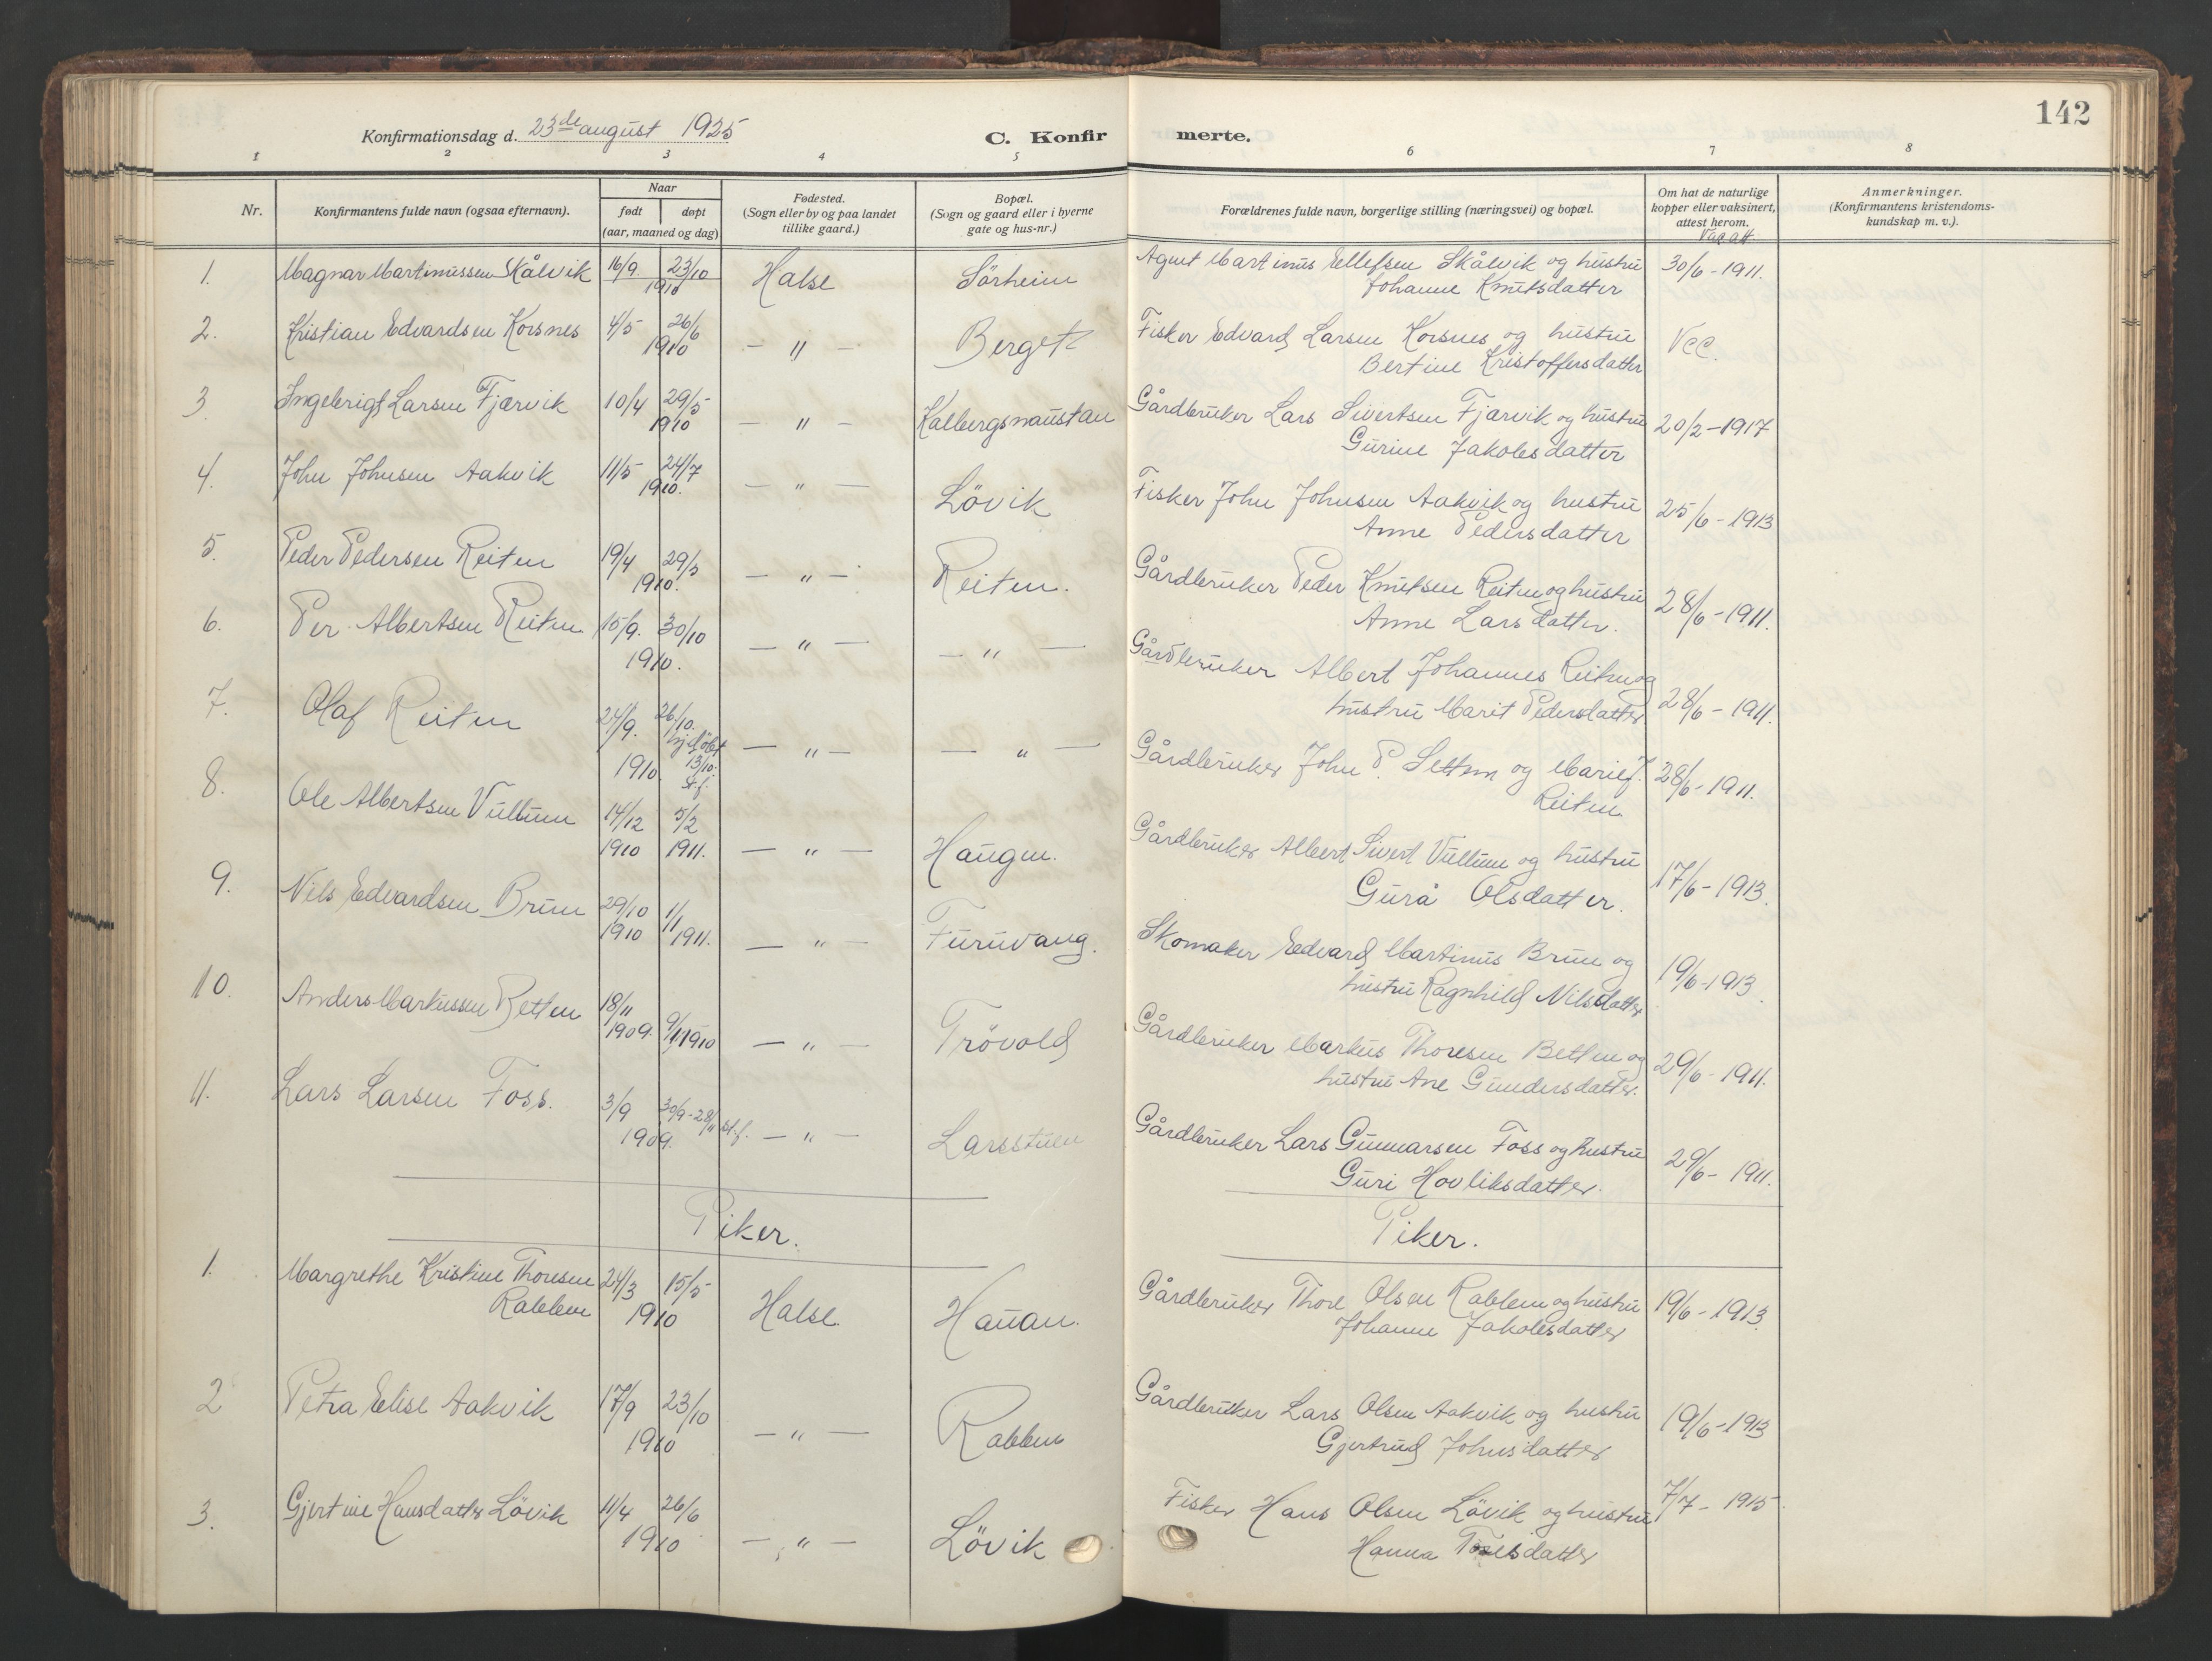 142
Konfirmationsdag d. 23de august 1925
C. Konfirmerte.
1 2 3 4 5 6 7 8
Nr.
Konfirmantens fulde navn (ogsaa efternavn).
Naar
født døpt
(aar, maaned og dag)
Fødested.
(Sogn eller by og paa landet
tillike gaard.)
Bopæl.
(Sogn og gaard eller i byerne
gate og hus-nr.)
Forældrenes fulde navn, borgerlige stilling (næringsvei) og bopæl.
Om hat de naturlige
kopper eller vaksinert,
attest herom.
Vac att
Anmerkninger.
(Konfirmantens kristendoms-
kundskap m. v.).
1. Magnar Martinussen Skålvik 16/9 23/10 1910 Halse Sörheim
Agent Martinus Ellefsen Skålvik og hustru
Johanne Knutsdatter
30/6-1911.
2. Kristian Edvardsen Korsnes 4/5 26/6 1910 — " — Berget
Fisker Edvard Larsen Korsnes og hustru
Bertine Kristoffersdatter
3. Ingebrigt Larsen Fjærvik 10/4 29/5 1910 — " — Kalbergsnaustan
Gårdbruker Lars Sivertsen Fjærvik og hustru
Gurine Jakobsdatter
20/2-1917
4. John Johnsen Aakvik 11/5 24/7 1910. — " — Lövik
Fisker John Johnsen Aakvik og hustru
Anne Pedersdatter
25/6-1913
5. Peder Pedersen Reiten 19/4 29/5 1910. — " — Reiten.
Gårdbruker Peder Knutsen Reiten og hustru
Anne Larsdatter.
28/6-1911.
6. Per Albertsen Reiten 15/9. 30/10 1910. — " — — " —
Gårdbruker Albert Johannes Reiten og
hustru Marit Pedersdatter
28/6-1911.
7. Olaf Reiten 24/9. 26/10. hj.döbt 13/10. st.f. 1910 — " — — " —
Gårdbruker John P. Settem og Marie J.
Reiten
28/6-1911.
8. Ole Albertsen Vullum 14/12 1910 5/2 1911. — " — Haugen.
Gårdbruker Albert Sivert Vullum og hustru
Gurå Olsdatter.
17/6-1913.
9. Nils Edvardsen Brun 29/10 1910 1/1 1911. — " — Furuvang.
Skomaker Edvard Martinus Brun og
hustru Ragnhild Nilsdatter
19/6-1913.
10. Anders Markussen Betten 18/11 1909. 9/1 1910 — " — Trövold
Gårdbruker Markus Thoresen Betten og
hustru Ane Gundersdatter.
29/6-1911.
11. Lars Larsen Foss. 3/9 30/9-28/11 st.f. 1909. — " — Larsstuen
Gårdbruker Lars Gunnarsen Foss og hustru
Guri Hovliksdatter.
29/6-1911.
Piker. Piker.
1. Margrethe Kristine Thoresen
Rabben 24/3 15/5 1910 Halse. Hauan.
Gårdbruker Thore Olsen Rabben og hustru
Johanne Jakobsdatter
19/6-1913.
2 Petra Elise Aakvik 17/9 23/10 1910 — " — Rabben
Gårdbruker Lars Olsen Aakvik og hustru
Gjertrud Johnsdatter
19/6-1913
3. Gjertine Hansdatter Lövik 11/4 26/6 1910 — " — Lövik
Fisker Hans Olsen Lövik og hustru
Hanna
7/7-1915.